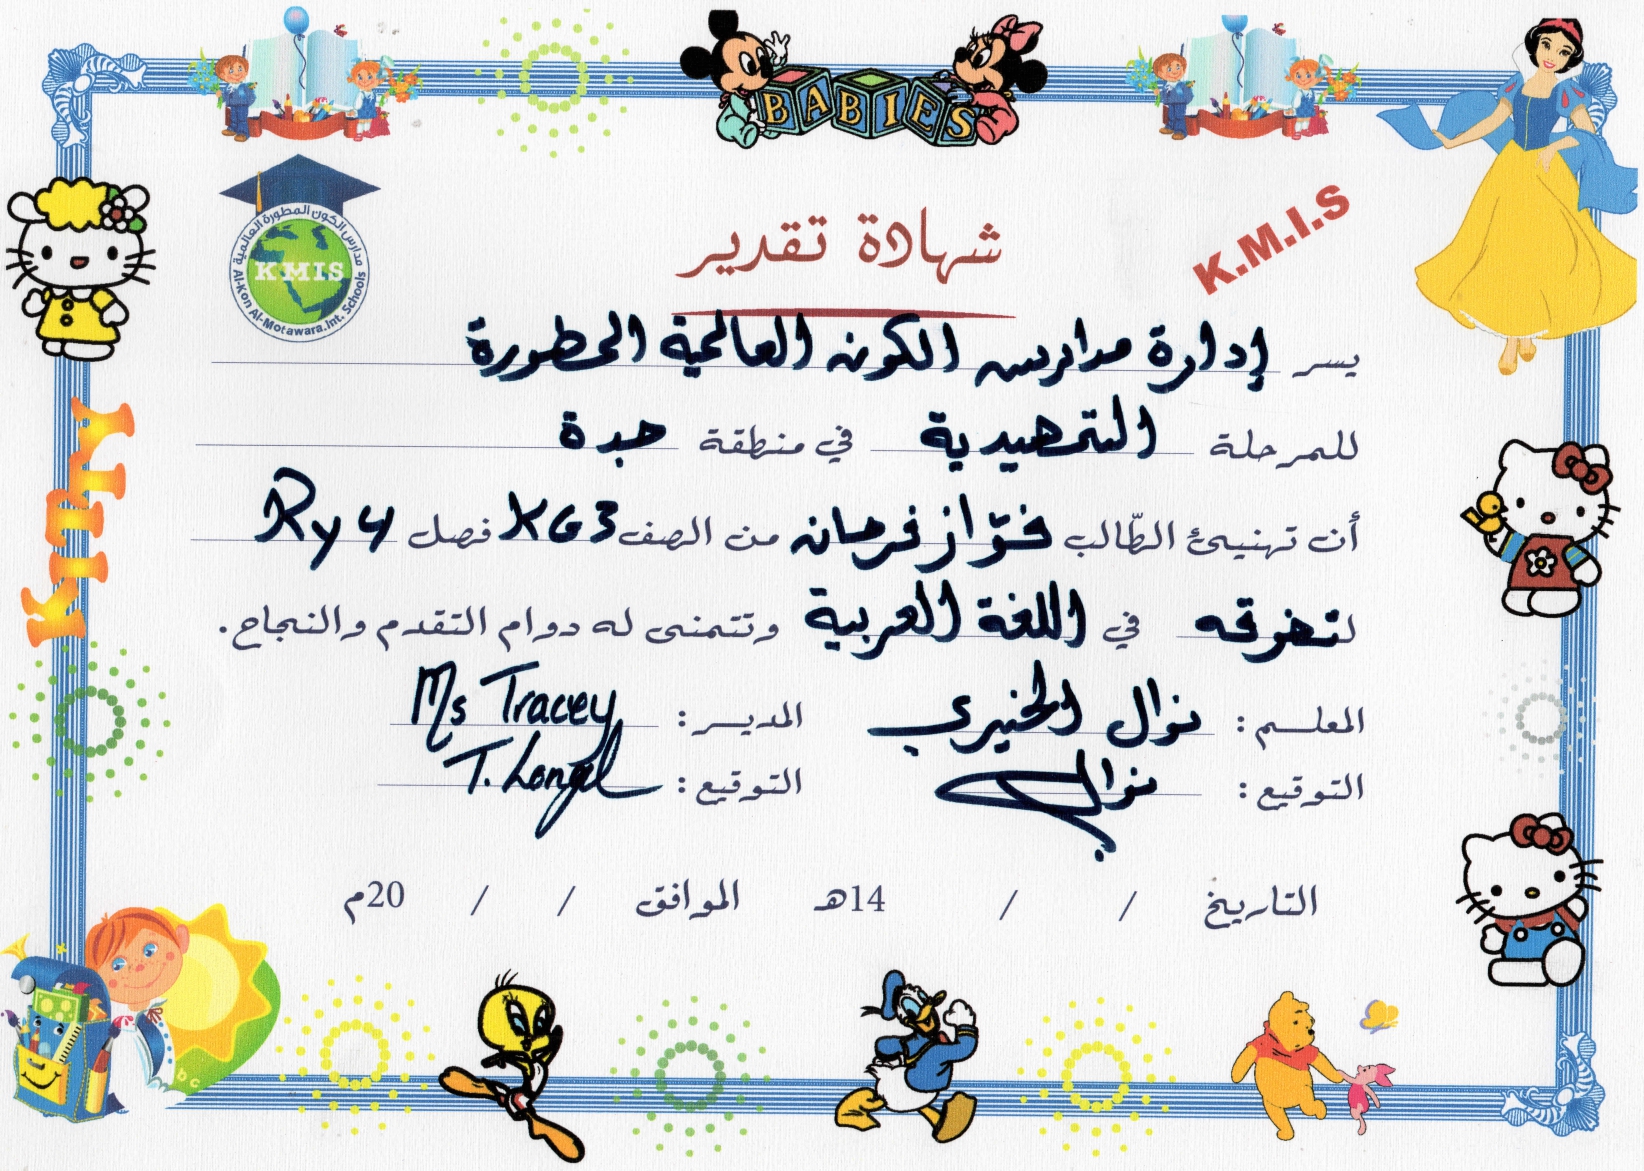 BABIES
مدارس الكون المطورة العالمية
KMIS
Al-Kon Al-Motawara.Int. Schools
K.M.I.S
شهادة تقدير
يسر إدارة مدارس الكون العالمية المطورة
للمرحلة التمهيدية في منطقة جدة
أن تهنيئ الطّالب فوّاز فرحان من الصف KG3 فصل Ry4
لتفوقه في اللغة العربية وتتمنى له دوام التقدم والنجاح.
المعلم: نوال الخنيري المدير: Ms Tracey
التوقيع: نوال التوقيع: T.
التاريخ / / 14هـ الموافق / / 20م
abc